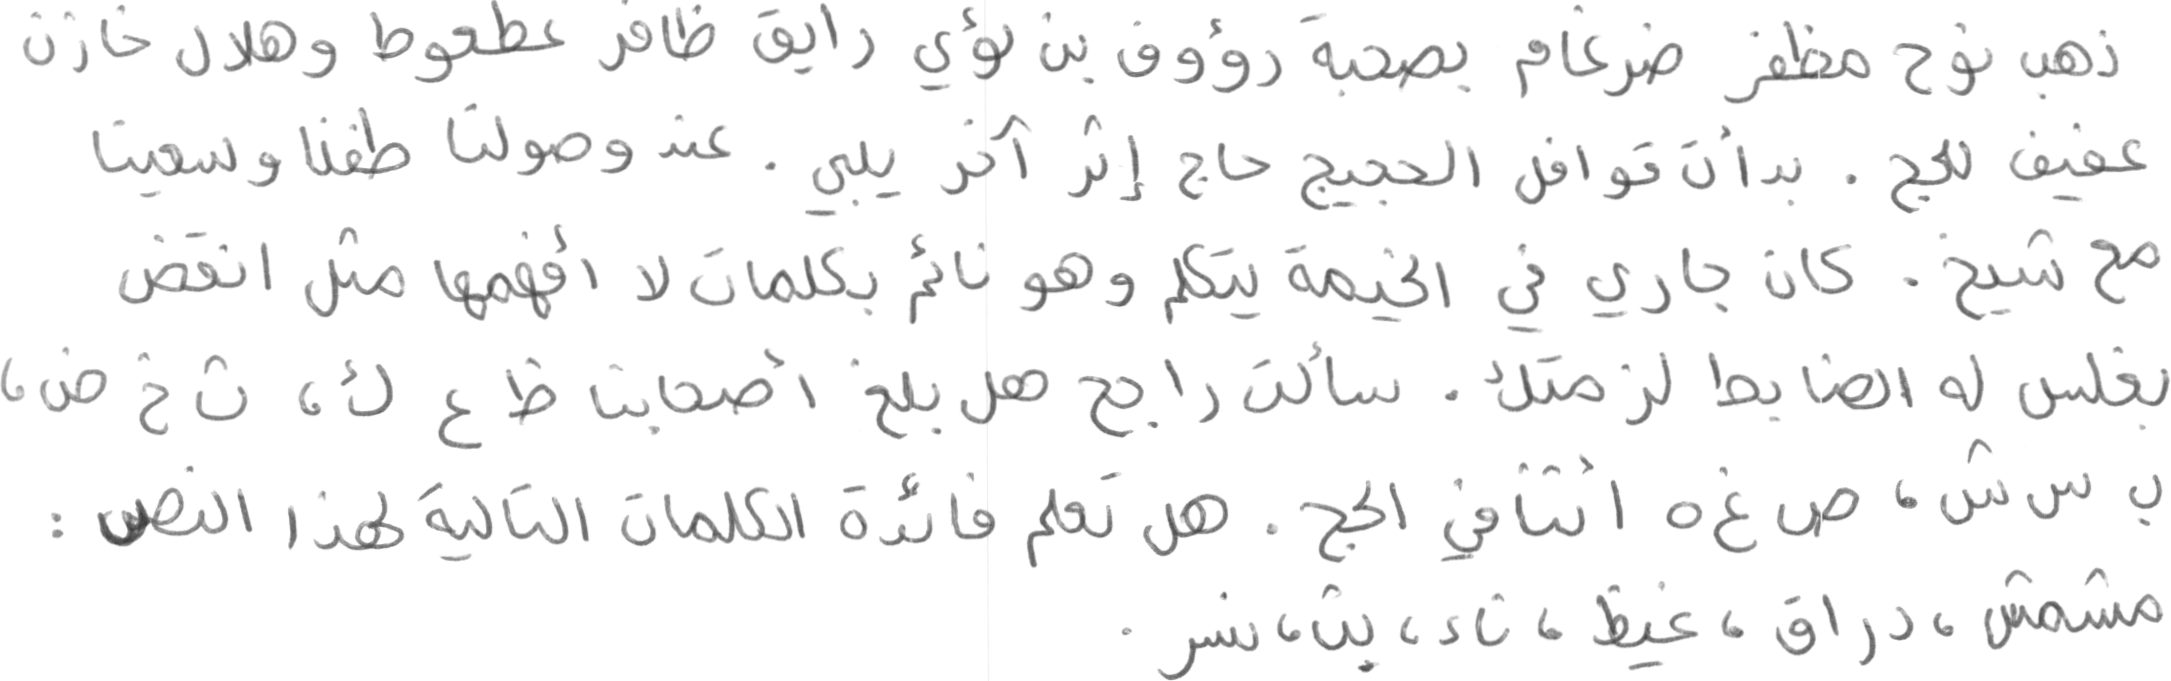 ذهب نوح مظفر ضرغام بصحبة رؤوف بن لؤي رايق ظافر عطعوط وهلال خازن
عفيف للحج . بدأت قوافل الحجيج حاج إثر آخر يلبي . عند وصولنا طفنا وسعينا
مع شيخ . كان جاري في الخيمة يتكلم وهو نائم بكلمات لا أفهمها مثل انقض
بغلس له الضابط لزمتك . سألت راجح هل بلغ أصحابنا ظ ع ك ، ث خ ض ،
ب س ش ، ص غ ه أننا في الحج . هل تعلم فائدة الكلمات التالية لهذا النص :
مشمش ، دراق ، غيظ ، ناء ، بث ، نسر .